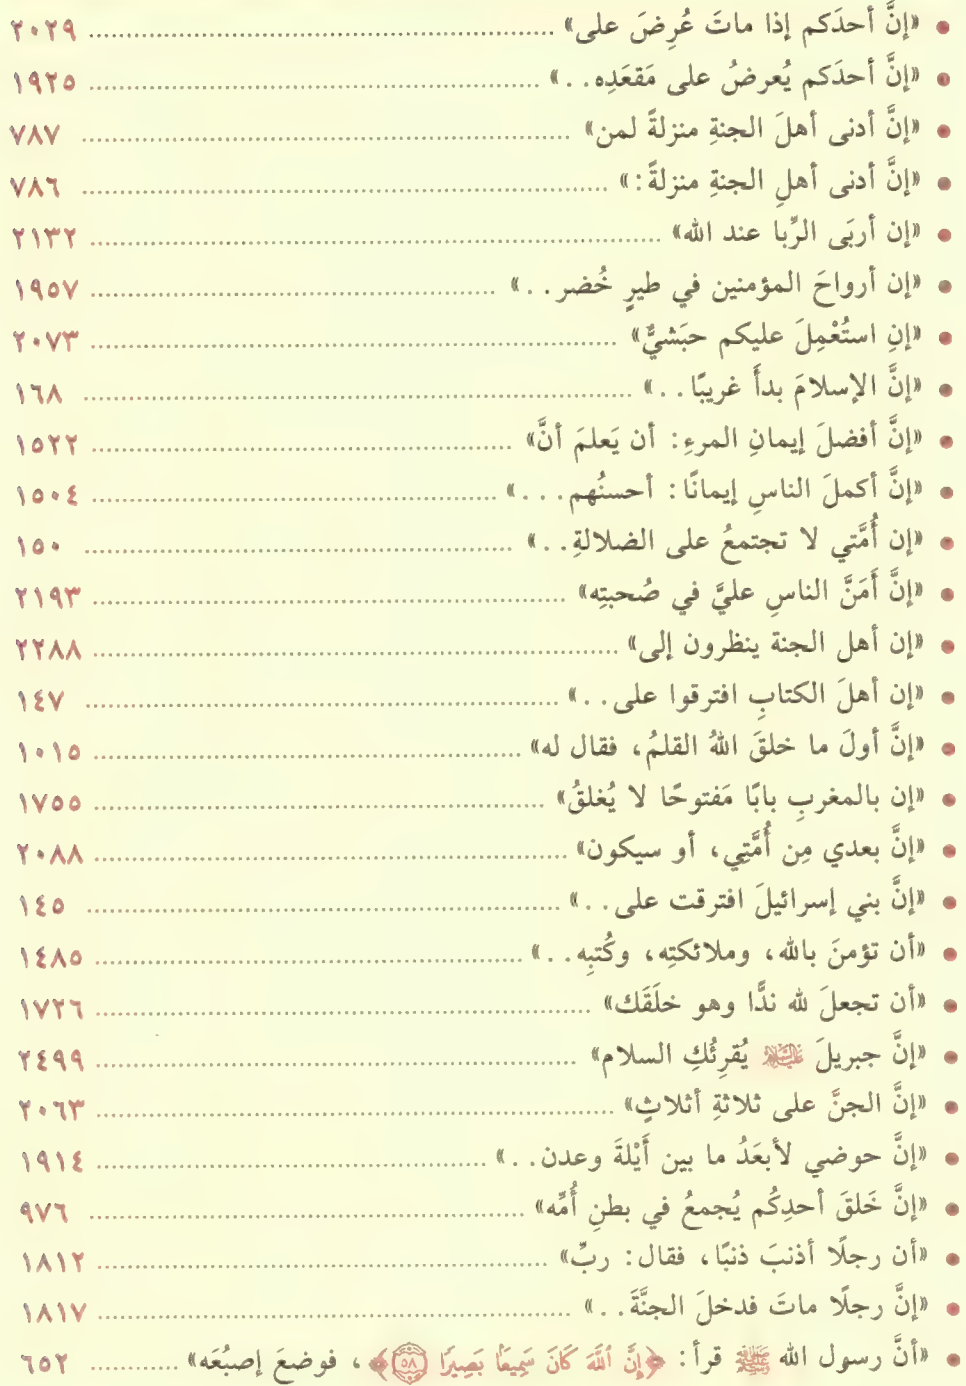 • «إنَّ أحدَكم إذا ماتَ عُرِضَ على» ........ ٢٠٢٩
• «إنَّ أحدَكم يُعرضُ على مَقعَدِه. .» ........ ١٩٢٥
• «إنَّ أدنى أهلَ الجنةِ منزلةً لمن» ........ ٧٨٧
• «إنَّ أدنى أهلِ الجنةِ منزلةً:» ........ ٧٨٦
• «إن أربَى الرِّبا عند الله» ........ ٢١٣٢
• «إن أرواحَ المؤمنين في طيرٍ خُضر. .» ........ ١٩٥٧
• «إنِ استُعْمِلَ عليكم حبَشيٌّ» ........ ٢٠٧٣
• «إنَّ الإسلامَ بدأَ غريبًا. .» ........ ١٦٨
• «إنَّ أفضلَ إيمانِ المرءِ: أن يَعلمَ أنَّ» ........ ١٥٢٢
• «إنَّ أكملَ الناسِ إيمانًا: أحسنُهم. . .» ........ ١٥٠٤
• «إن أُمَّتي لا تجتمعُ على الضلالةِ. .» ........ ١٥٠
• «إنَّ أَمَنَّ الناسِ عليَّ في صُحبتِه» ........ ٢١٩٣
• «إن أهل الجنة ينظرون إلى» ........ ٢٢٨٨
• «إن أهلَ الكتابِ افترقوا على. .» ........ ١٤٧
• «إنَّ أولَ ما خلقَ اللهُ القلمُ، فقال له» ........ ١٠١٥
• «إن بالمغربِ بابًا مَفتوحًا لا يُغلقُ» ........ ١٧٥٥
• «إنَّ بعدي مِن أُمَّتِي، أو سيكون» ........ ٢٠٨٨
• «إنَّ بني إسرائيلَ افترقت على. .» ........ ١٤٥
• «أن تؤمنَ بالله، وملائكتِه، وكُتبِه. .» ........ ١٤٨٥
• «أن تجعلَ لله ندًّا وهو خلَقَك» ........ ١٧٢٦
• «إنَّ جبريلَ عليه السلام يُقرِئُكِ السلام» ........ ٢٤٩٩
• «إنَّ الجنَّ على ثلاثةِ أثلاثٍ» ........ ٢٠٦٣
• «إنَّ حوضي لأبعَدُ ما بين أَيْلةَ وعدن. .» ........ ١٩١٤
• «إنَّ خَلقَ أحدِكُم يُجمعُ في بطنِ أُمِّه» ........ ٩٧٦
• «أن رجلًا أذنبَ ذنبًا، فقال: ربِّ» ........ ١٨١٢
• «إنَّ رجلًا ماتَ فدخلَ الجنَّةَ. .» ........ ١٨١٧
• «أنَّ رسول الله ﷺ قرأ: ﴿إِنَّ ٱللَّهَ كَانَ سَمِيعَۢا بَصِيرٗا ٥٨﴾، فوضعَ إصبُعَه» ........ ٦٥٢